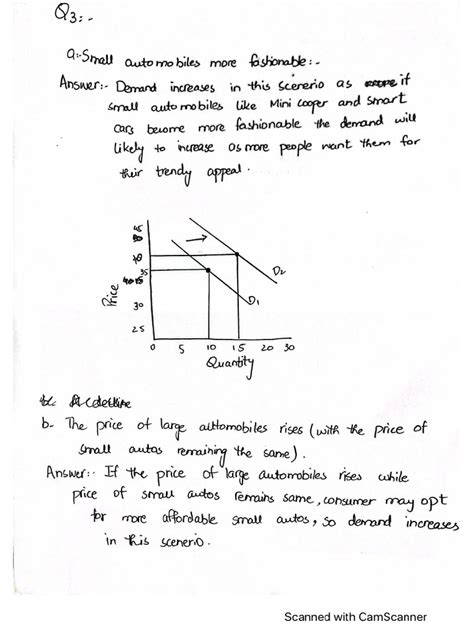 Q3:-
a:- Small automobiles more fashionable:-
Answer:- Demand increases in this scenerio as if
small automobiles like Mini Cooper and Smart
cars become more fashionable the demand will
likely to increase as more people want them for
their trendy appeal.
45
35
30
25
Price
D2
D1
0 5 10 15 20 30
Quantity
b- The price of large automobiles rises (with the price of
small autos remaining the same).
Answer:- If the price of large automobiles rises while
price of small autos remains same, consumer may opt
for more affordable small autos, so demand increases
in this scenerio.
Scanned with CamScanner